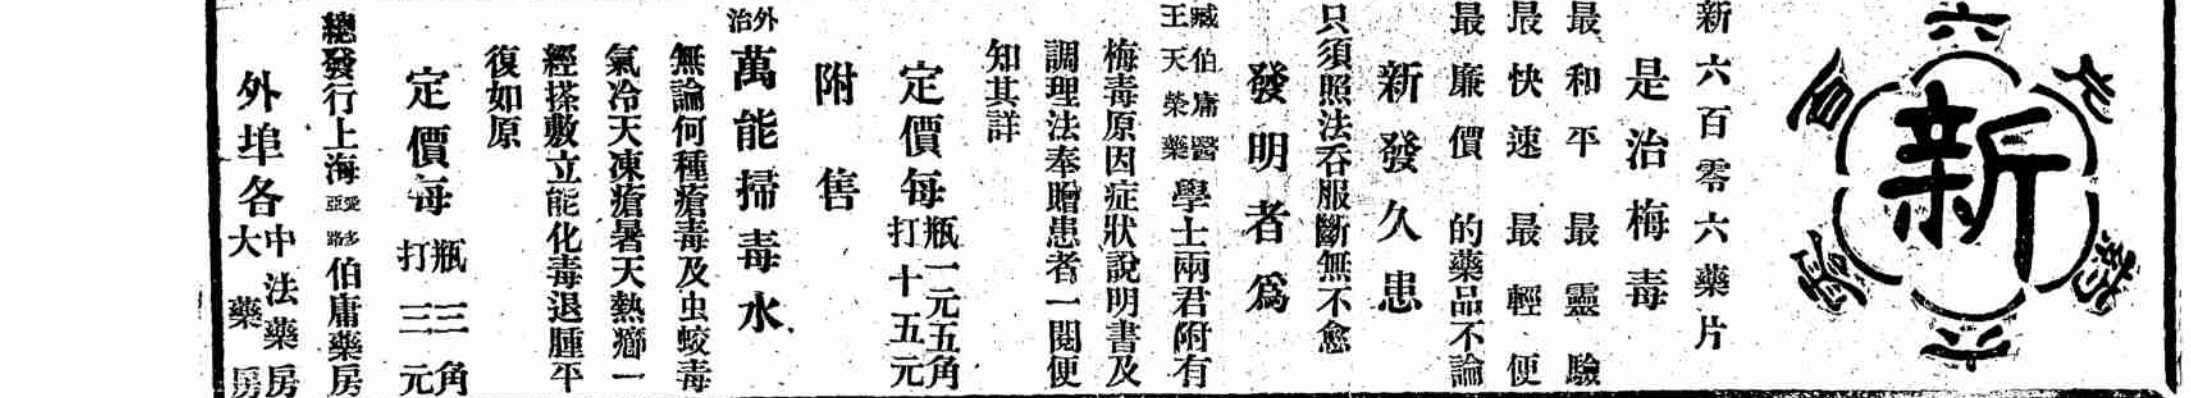 新
六百零六
新六百零六藥片
是治梅毒
最和平 最靈驗
最快速 最輕便
最廉價 的藥品不論
新發久患
只須照法吞服斷無不愈
發明者爲
臧伯庸醫
王天榮藥
學士兩君附有
梅毒原因症狀說明書及
調理法奉贈患者一閱便
知其詳
定價每
瓶一元五角
打十五元
附售
外治
萬能掃毒水
無論何種瘡毒及虫蛟毒
氣冷天凍瘡暑天熱癤一
經搽敷立能化毒退腫平
復如原
定價每
瓶三角
打三元
總發行上海
愛多
亞路
伯庸藥房
外埠各
中法藥房
大藥房